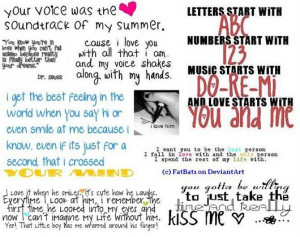 your voice was the
soundtrack of my summer.
"You know you're in
love when you can't fall
asleep because reality
is finally better than
your dreams."
Dr. Seuss
cause i love you
with all that i am
and my voice shakes
along with my hands.
LETTERS START WITH
ABC
NUMBERS START WITH
123
MUSIC STARTS WITH
DO-RE-MI
AND LOVE STARTS WITH
YOU and ME
i get the best feeling in
the world when you say hi or
even smile at me because i
know, even if its just for a
second, that i crossed
YOUR MIND
i love him
I want you to be the last person
I fall in love with and the only person
I spend the rest of my life with.
(c) FatBats on DeviantArt
I Love it when he smiles. It's cute how he laughs.
Everytime I look at him, i remember the
first time he looked into my eyes and
now i can't imagine my life without him.
Yep! That little boy has me wrapped around his finger!
you gotta be willing
to just take the
time and really
kiss me